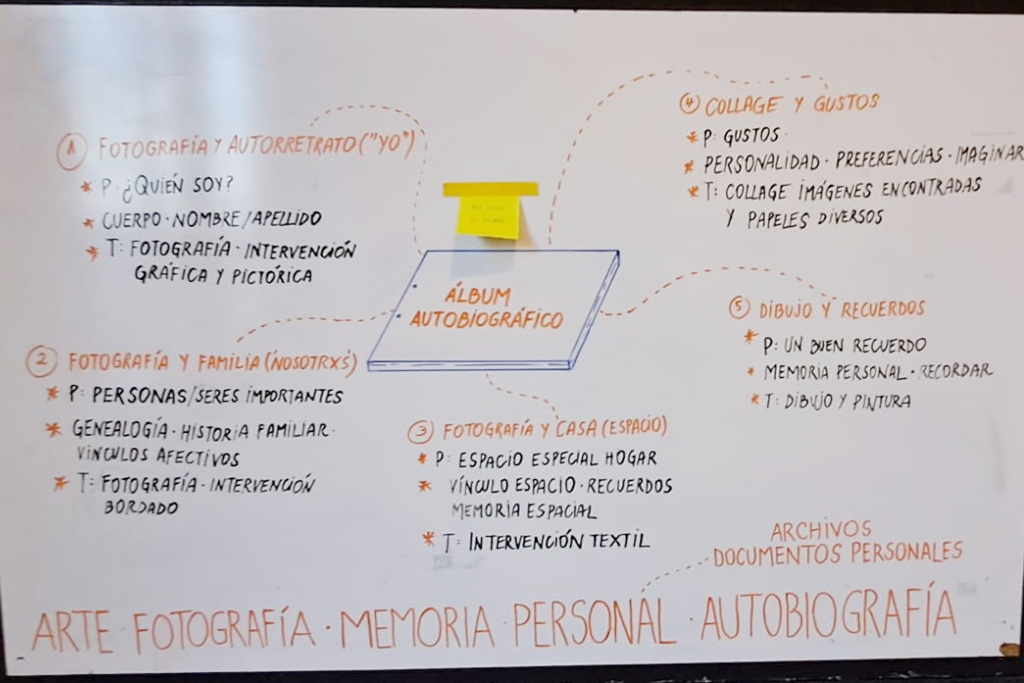 1 FOTOGRAFÍA Y AUTORRETRATO ("YO")
* P: ¿QUIÉN SOY?
* CUERPO · NOMBRE/APELLIDO
* T: FOTOGRAFÍA · INTERVENCIÓN
GRÁFICA Y PICTÓRICA
2 FOTOGRAFÍA Y FAMILIA (NOSOTRXS)
* P: PERSONAS/SERES IMPORTANTES
* GENEALOGÍA · HISTORIA FAMILIAR ·
VÍNCULOS AFECTIVOS
* T: FOTOGRAFÍA · INTERVENCIÓN
BORDADO
ÁLBUM
AUTOBIOGRÁFICO
3 FOTOGRAFÍA Y CASA (ESPACIO)
* P: ESPACIO ESPECIAL HOGAR
* VÍNCULO ESPACIO · RECUERDOS
MEMORIA ESPACIAL
* T: INTERVENCIÓN TEXTIL
4 COLLAGE Y GUSTOS
* P: GUSTOS ·
* PERSONALIDAD · PREFERENCIAS · IMAGINAR
* T: COLLAGE IMÁGENES ENCONTRADAS
Y PAPELES DIVERSOS
5 DIBUJO Y RECUERDOS
* P: UN BUEN RECUERDO
* MEMORIA PERSONAL · RECORDAR
* T: DIBUJO Y PINTURA
ARCHIVOS
DOCUMENTOS PERSONALES
ARTE · FOTOGRAFÍA · MEMORIA PERSONAL · AUTOBIOGRAFÍA